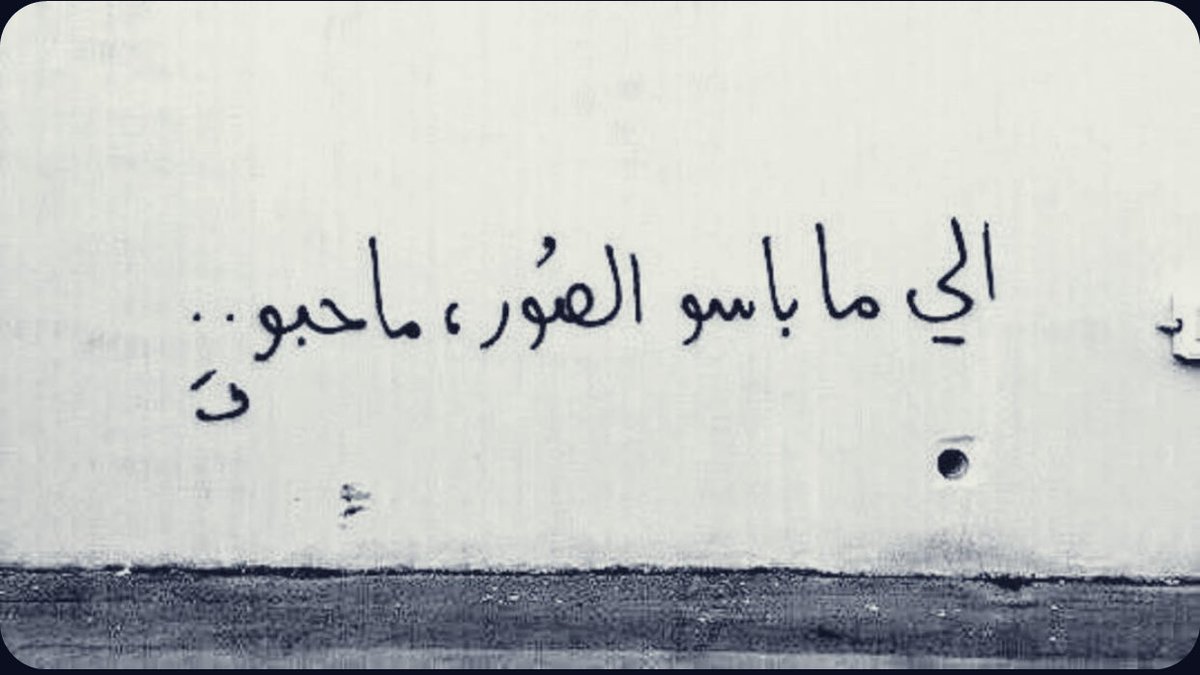 الي ما باسو الصُور، ماحبو..